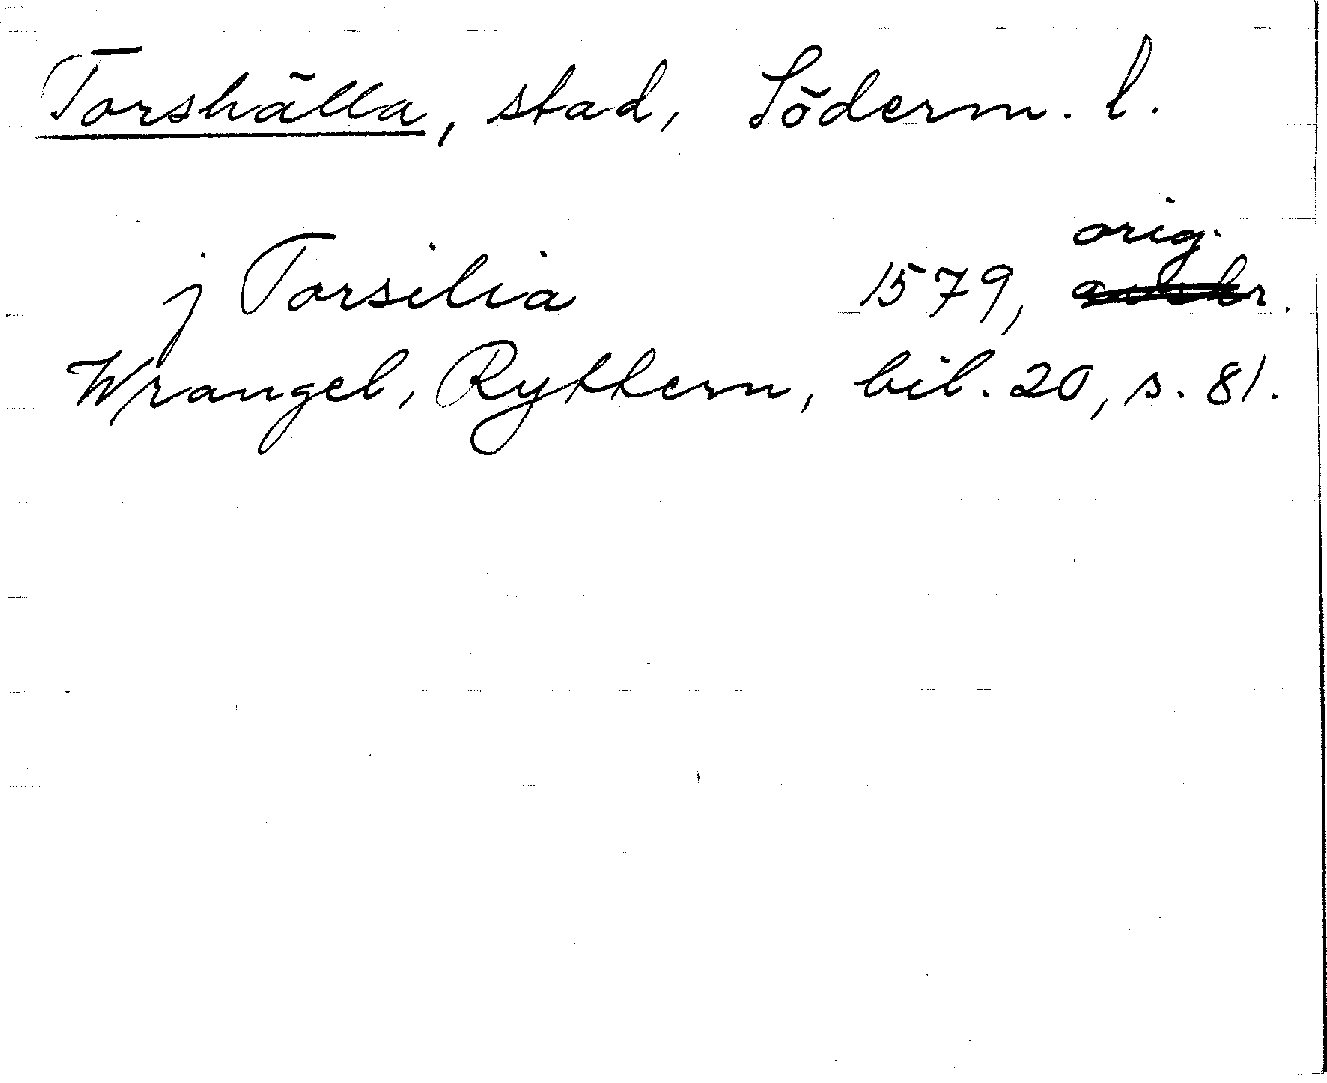 Torshälla, stad, Söderm. l.
orig.
j Torsilia 1579,
Wrangel, Ryttern, bil. 20, s. 81.